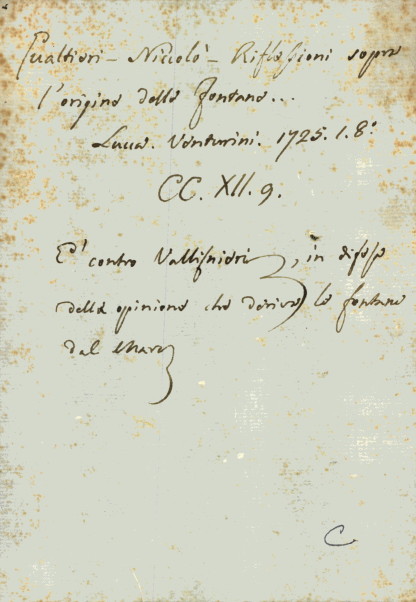 Gualtieri - Niccolò - Riflessioni sopra
l'origine delle fontane...
Lucca. Venturini. 1725. 1. 8°
CC. XII. 9.
E' contro Vallisnieri, in difesa
della opinione che deriva le fontane
dal mare
C